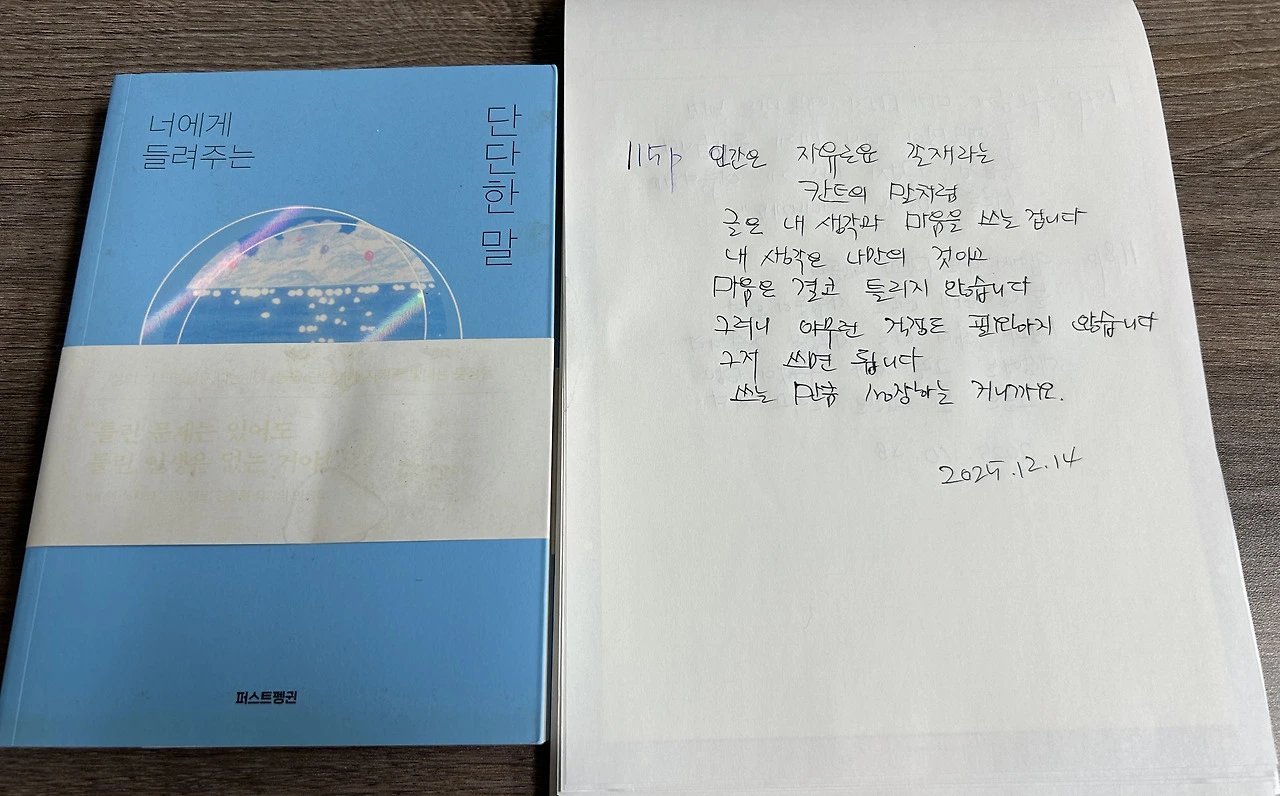 너에게
들려주는
단단한 말
"틀린 문제는 있어도
틀린 인생은 없는 거야."
퍼스트펭귄
115p 인간은 자유로운 존재라는
칸트의 말처럼
글은 내 생각과 마음을 쓰는 겁니다
내 생각은 나만의 것이고
마음은 결코 틀리지 않습니다
그러니 아무런 걱정도 필요하지 않습니다
그저 쓰면 됩니다
쓰는 만큼 성장하는 거니까요.
2025.12.14